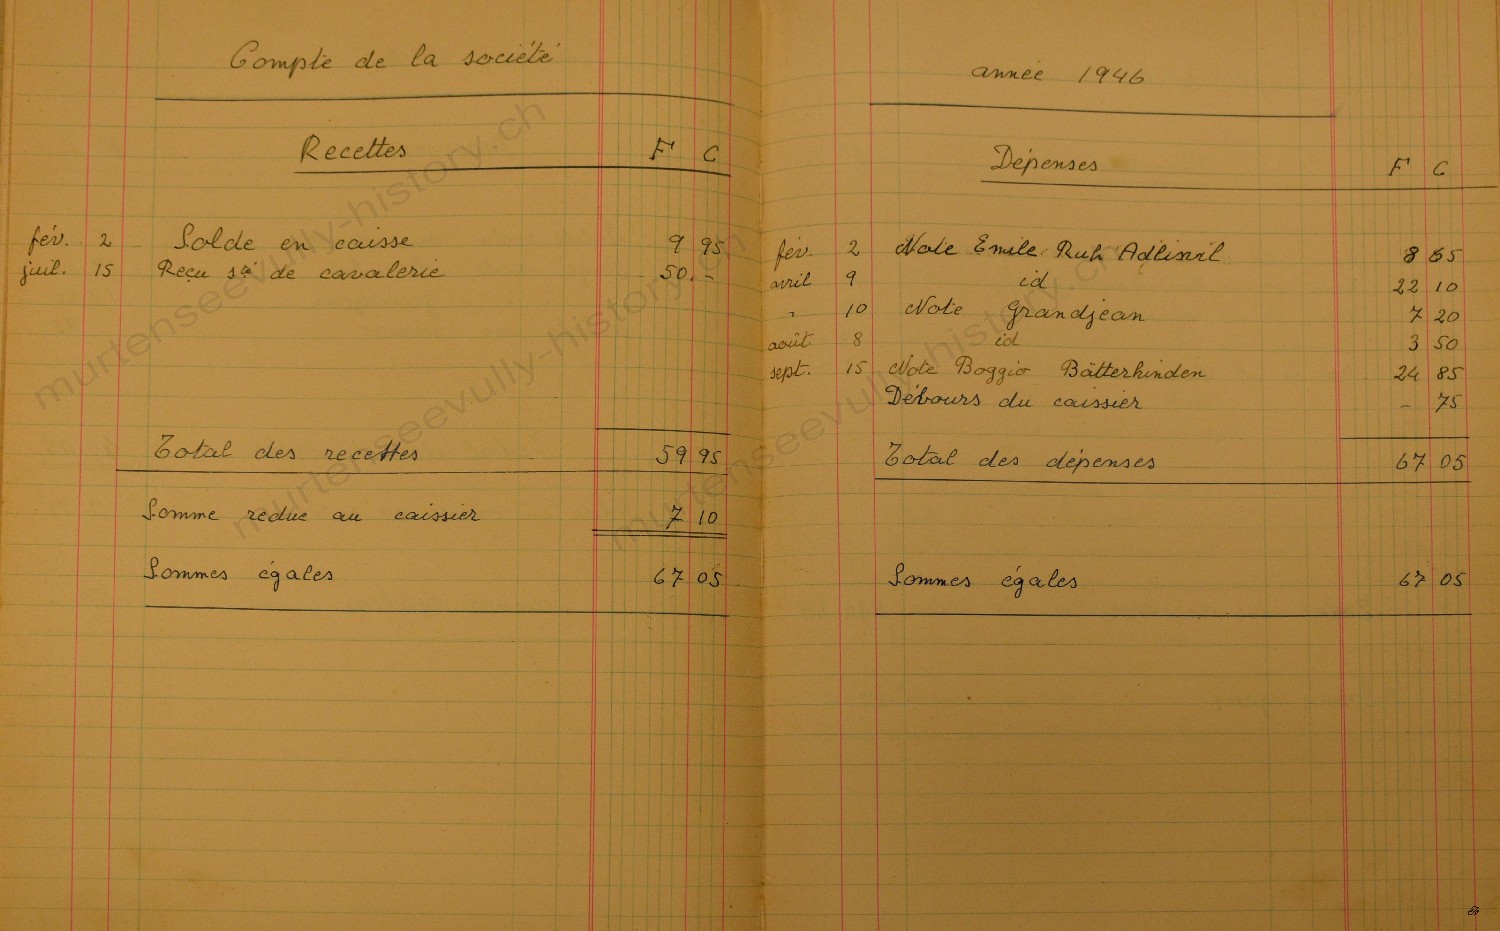 Compte de la société
Recettes F C
fév. 2 Solde en caisse 9 95
juil. 15 Reçu sté de cavalerie 50.-
Total des recettes 59 95
Somme redue au caissier 7 10
Sommes égales 67 05
année 1946
Dépenses F C
fév. 2 Note Emile Ruh Adliswil 8 65
avril 9 id 22 10
" 10 Note Grandjean 7 20
août 8 id 3 50
sept. 15 Note Boggio Bätterkinden 24 85
Débours du caissier - 75
Total des dépenses 67 05
Sommes égales 67 05
murtenseevully-history.ch
murtenseevully-history.ch
murtenseevully-history.ch